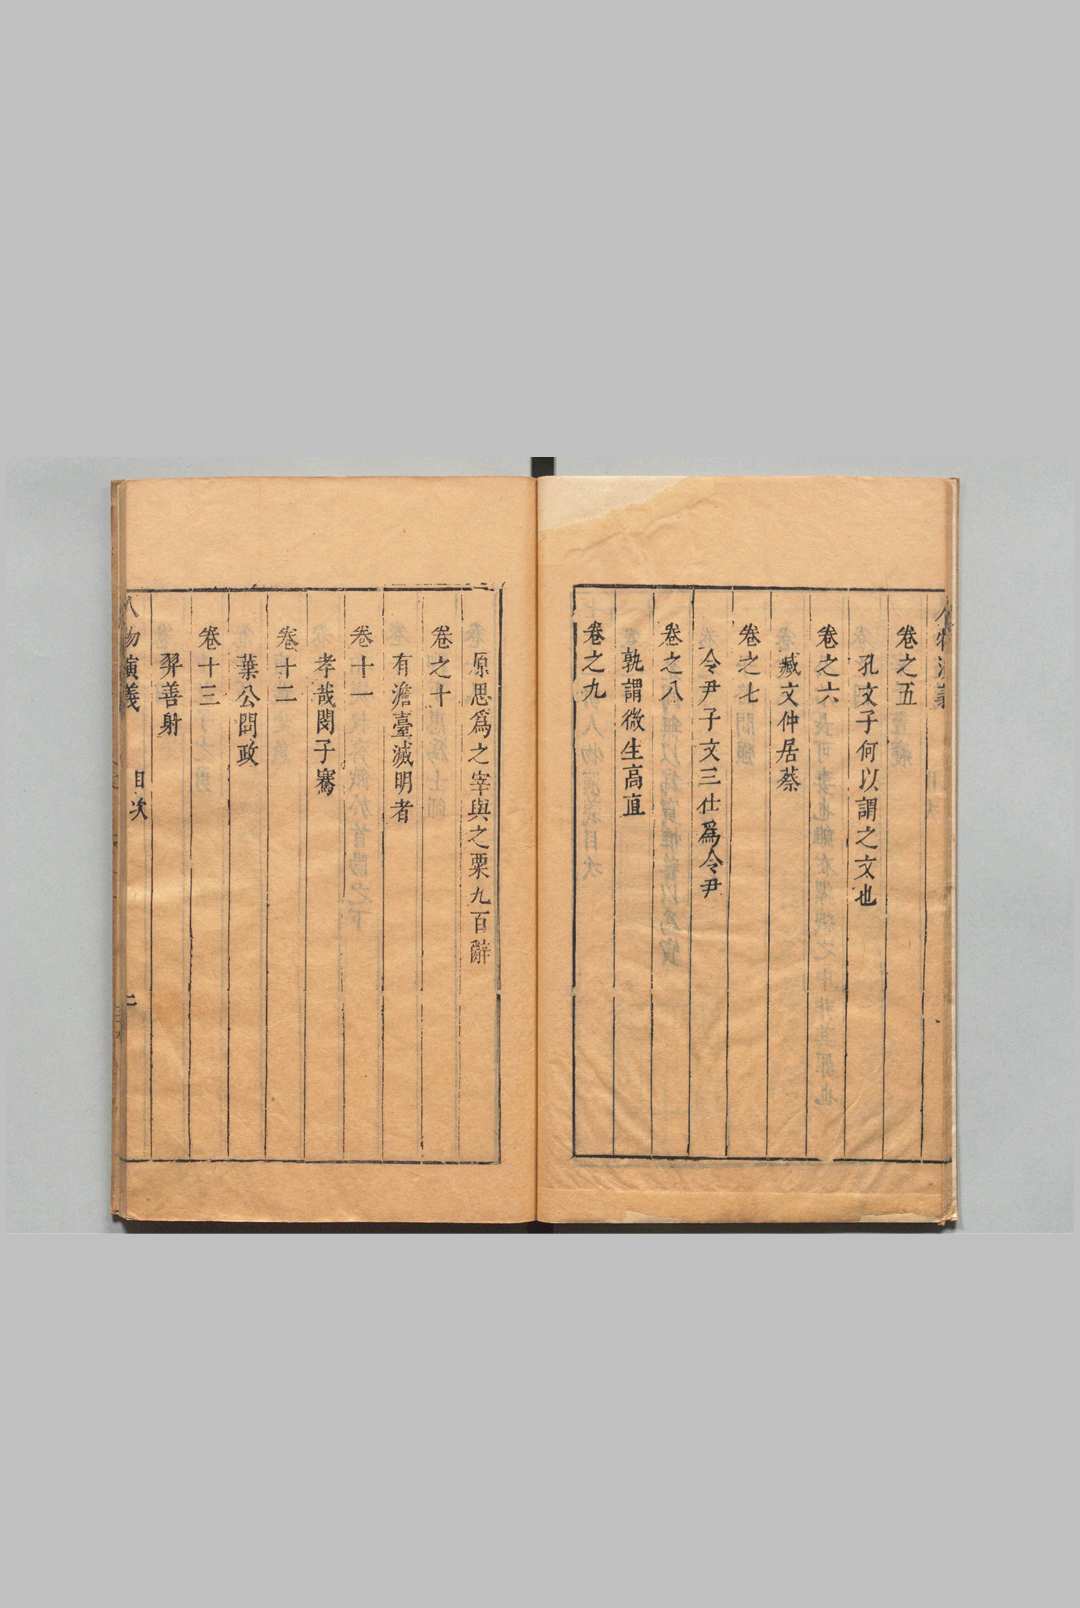 卷之五
孔文子何以謂之文也
卷之六
臧文仲居蔡
卷之七
令尹子文三仕爲令尹
卷之八
孰謂微生高直
卷之九
原思爲之宰與之粟九百辭
卷之十
有澹臺滅明者
卷十一
孝哉閔子騫
卷十二
葉公問政
卷十三
羿善射
人物演義 目次